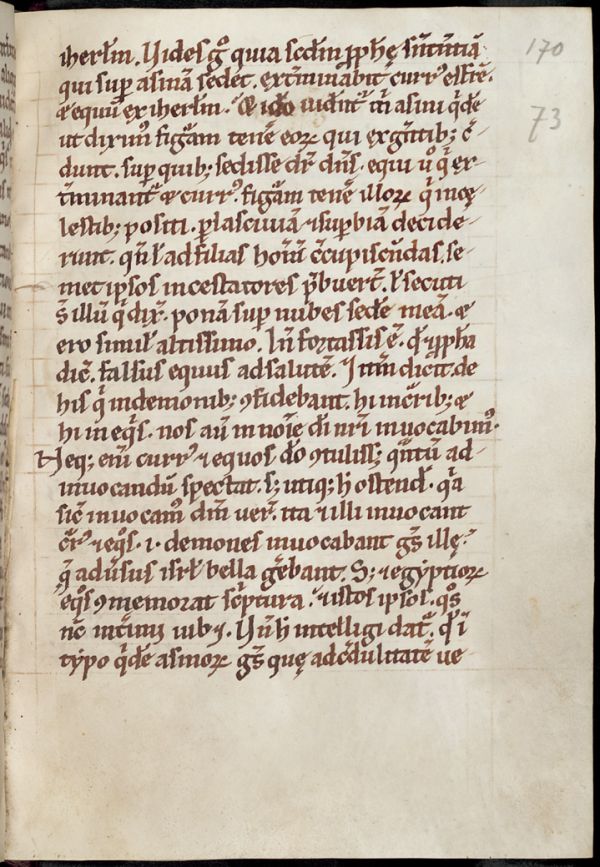 iherl̅m. Vides g° quia scd̅m ꝓph̅e sn̅tentiā 170
qui suꝑ asinā sedet. ext̅minabit̉ curr⁹ effrē.
⁊ equū ex iherl̅m. 73
ut dixim⁹ figͣm tenēt eoꝝ qui ex gn̅tib; c̅e-
dunt. suꝑ quib; sedisse dr̅ dn̅s. equi ṽ q̇ ex-
t̅minant̉ ⁊ curr⁹. figͣm tenēt illoꝝ q̇ in cę-
lestib; positi. ꝑ lasciviā ⁊ suꝑbiā decide-
runt. ad filias hoīū c̅cupiscn̅das, se-
met ipsos incestatores p̅buer̅t. ł secuti
s̅ illū q̇ dix̅. ponā suꝑ nubes sedē meā. ⁊
ero simił altissimo. In̅ fortassis ē. qđ ꝓph̅a
dic̅. falsus equus ad salutē. Nam dicit̉ de
his q̇ in demonib; ꝯfidebant. hi in c̅rib; ⁊
hi in eq̇s. nos aū in noīe dī nr̅i invocabim⁹.
Neq; eni̅ curr⁹ ⁊ equos dō ꝯtuliss; qn̅tū ad-
invocandū spectat. s; utiq; h̅ ostend̅. qͥa
sic̅ invocam⁹ dm̅ ver̅. ita ⁊ illi invocant
c̅r⁹ ⁊ eq̊s. i. demones invocabant gn̅s illę.
q̅ adv̅sus isrł bella ge̅bant. S; ⁊ egyptioꝝ
eq̊s ꝯmemorat sc̅ptura. ⁊ istos ipsos. q̊s
nc̅ int̅imi iub&. Vn̅ h̅ intelligi dat̉. qđ ī
typo q̇dē asinoꝝ gn̅s quę ad c̅dulitatē ve-